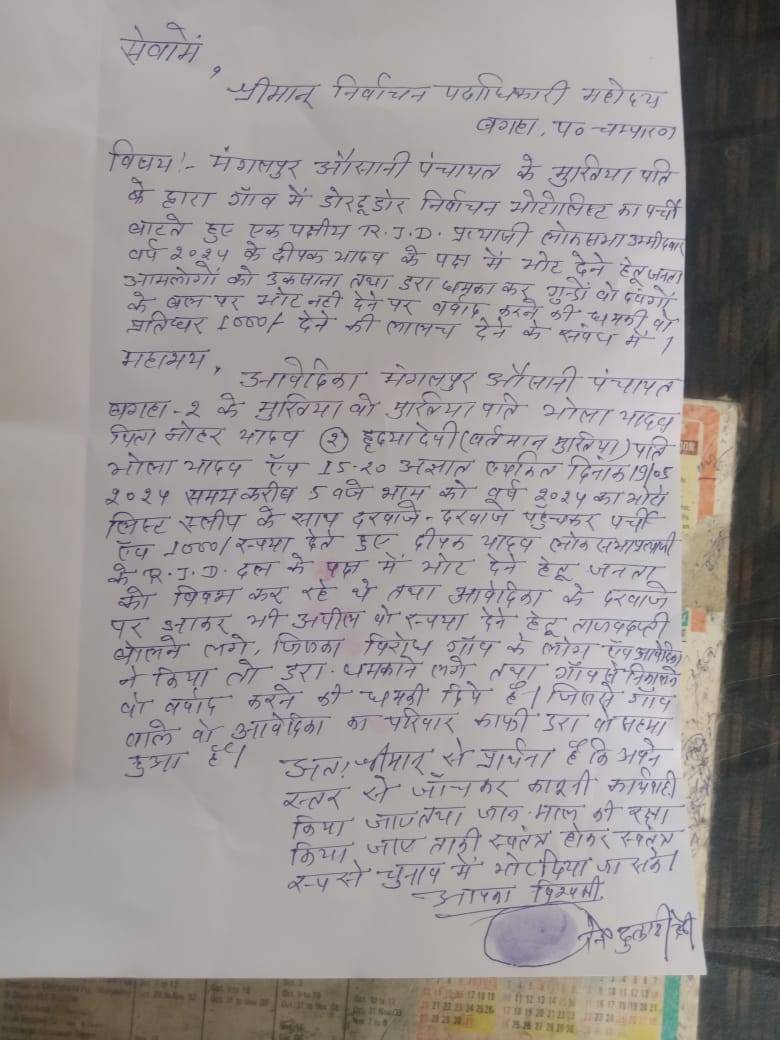 सेवामें,
श्रीमान् निर्वाचन पदाधिकारी महोदय
बगहा, प० चम्पारण
विषय:- मंगलपुर औसानी पंचायत के मुखिया पति
के द्वारा गाँव में डोरटूडोर निर्वाचन भोटोलिस्ट का पर्ची
बाटते हुए एक पक्षीय R.J.D. प्रत्याशी लोकसभा उम्मीदवार
वर्ष २०२५ के दीपक यादव के पक्ष में भोट देने हेतू जनता
आमलोगों को उकसाना तथा डरा धमका कर गुन्डों वो दबंगों
के बल पर भोट नही देने पर बर्बाद करने की धमकी वो
प्रतिघर 1000/ देने की लालच देने के संबंध में।
महाशय,
आवेदिका मंगलपुर औसानी पंचायत
बगहा-२ के मुखिया वो मुखिया पति भोला यादव
पिता जोहर यादव (२) हृदया देवी (वर्तमान मुखिया) पति
भोला यादव एंव 15-20 अज्ञात व्यक्ति दिनांक 19/05
२०२५ समय करीब 5 बजे शाम को वर्ष २०२५ का भोटर
लिस्ट स्लीप के साथ दरवाजे-दरवाजे पहुँचकर पर्ची
एंव 1000/ रूपया देते हुए दीपक यादव लोकसभा प्रत्याशी
के R.J.D. दल के पक्ष में भोट देने हेतू जनता
को विवश कर रहे थे तथा आवेदिका के दरवाजे
पर आकर भी अपील वो रूपया देने हेतू
बोलने लगे, जिसका विरोध गाँव के लोग एंव आवेदिका
ने किया तो डरा-धमकाने लगे तथा गाँव से निकालने
वो बर्बाद करने की धमकी दिये है। जिससे गाँव
वाले वो आवेदिका का परिवार काफी डरा वो सहमा
हुआ है।
अत: श्रीमान् से प्रार्थना है कि अपने
स्तर से जाँचकर कानूनी कार्यवाही
किया जाए तथा जान-माल की रक्षा
किया जाए ताकी स्वतंत्र होकर स्वतंत्र
रूप से चुनाव में भोट दिया जा सके।
आपका विश्वासी
दुलारी देवी